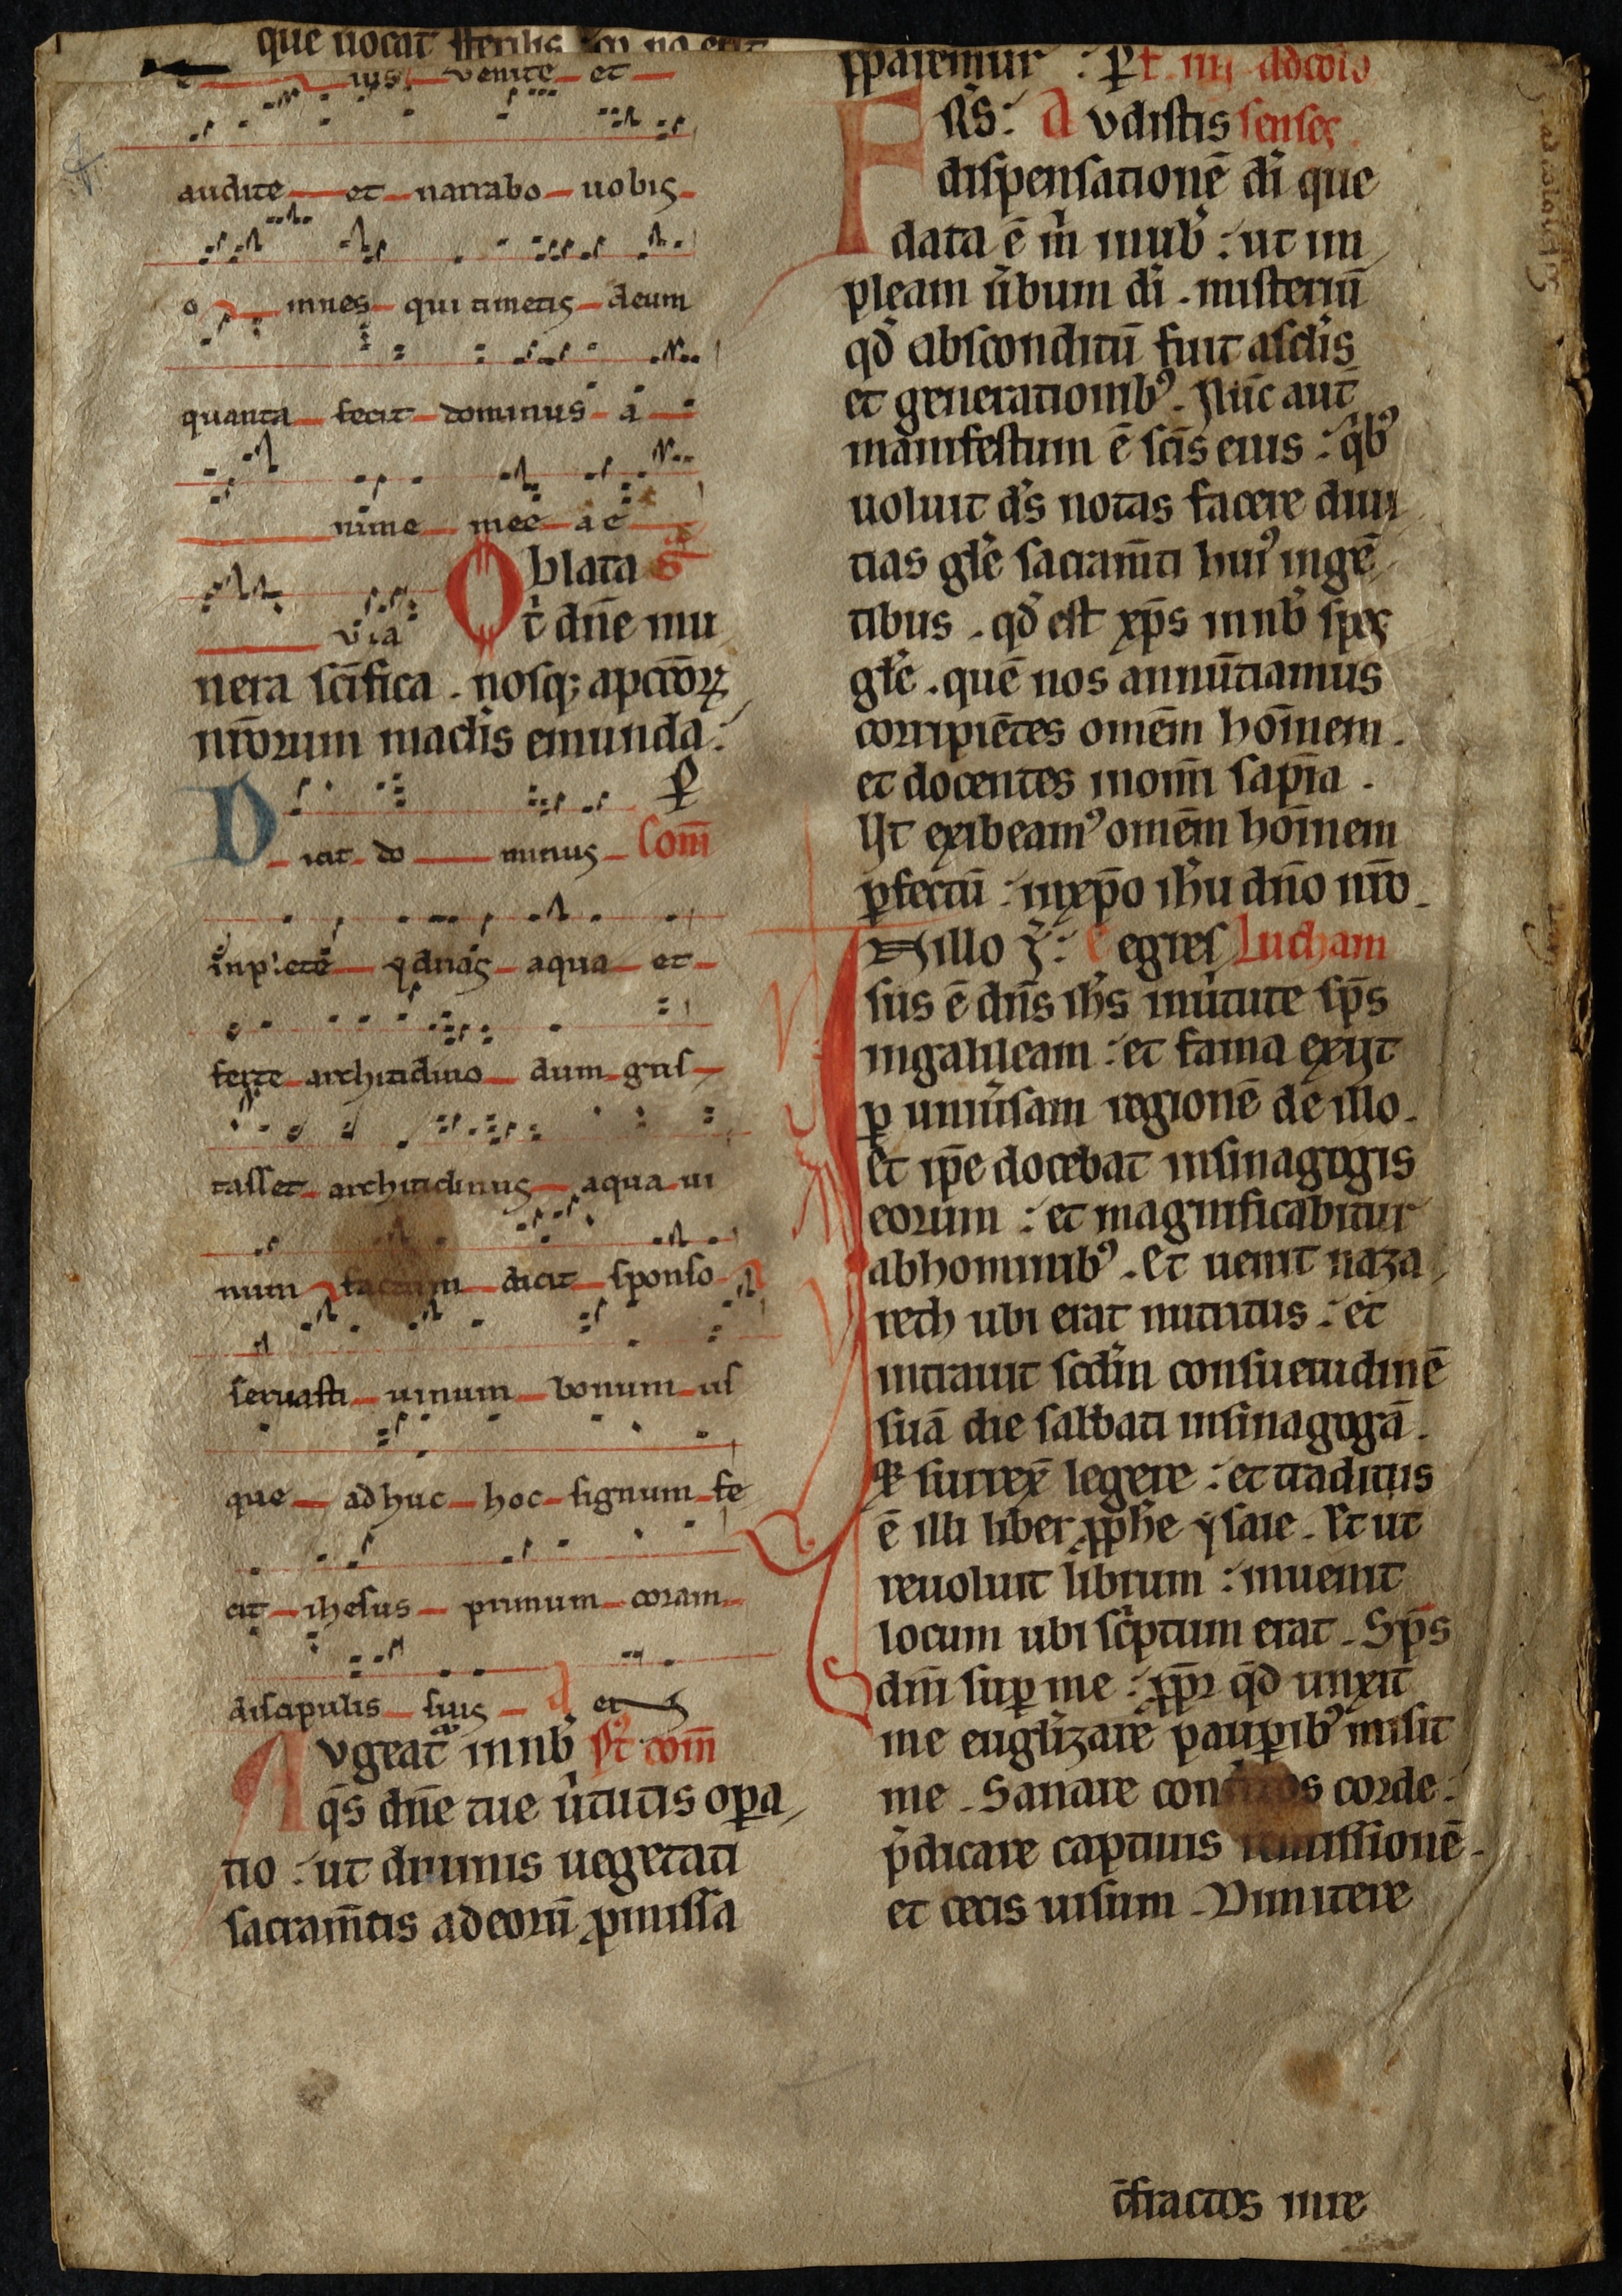 que uocat sterilis
ius venite et
audite et narrabo uobis
o mnes qui timetis deum
quanta fecit dominus a
nime mee a e
via
Oblata st
t dn̄e mu
nera sc̄ifica . nosq; a pctōꝝ
nr̄orum maclis emunda :
P̱
Dicit do minus Com̄
inplete ydrias aqua et
ferte architidino dum gus
tasset architidinus aqua ui
num factum dicit sponso
seruasti uinum bonum us
que adhuc hoc signum fe
cit ihesus primum coram
discipulis suis et
Augeat̄ in nb̄ pt com̄
q̄s dn̄e tue ūtutis oꝑa
tio : ut diuinis uegetati
sacram̄tis ad eorū ꝓmissa
p̄paremur : ꝑt iiij ad colo
FRS: Audistis senses
dispensationē di que
data ē m̄ in uob̄ : ut im
pleam ūbum di . misteriū
qd̄ absconditū fuit a sclis
et generationibꝰ . Nūc aut̄
manifestum ē sc̄is eius : qb̄ꝰ
uoluit ds̄ notas facere diui
tias gl̄e sacram̄ti huiꝰ in gē
tibus . qd̄ est xp̄s in nb̄ spes
gl̄e . quē nos annūtiamus
corripiētes omēm hōinem .
et docentes in om̄i sapīa .
Ut exibeamꝰ omēm hōinem
ꝑfectū : in xp̄o ih̄u dn̄o nr̄o .
In illo t̄ : egres Lucham
sus ē dn̄s ih̄s in ūtute sp̄s
in galileam : et fama exijt
ꝑ uniūsam regionē de illo .
Et ip̄e docebat in sinagogis
eorum : et magnificabitur
ab hominibꝰ . Et uenit naza
reth ubi erat nutritus : et
intrauit scd̄m consuetudinē
suā die sabbati in sinagogā .
et surrex̄ legere : et traditus
ē illi liber ꝓph̄e ysaie . Et ut
reuoluit librum : inuenit
locum ubi sc̄ptum erat . Sp̄s
dn̄i suꝑ me : ꝓp̄r qd̄ unxit
me eugl̄izare pauꝑibꝰ misit
me . Sanare contritos corde :
p̄dicare captiuis remissionē .
et cecis uisum . Dimitere
c̄fractos in re